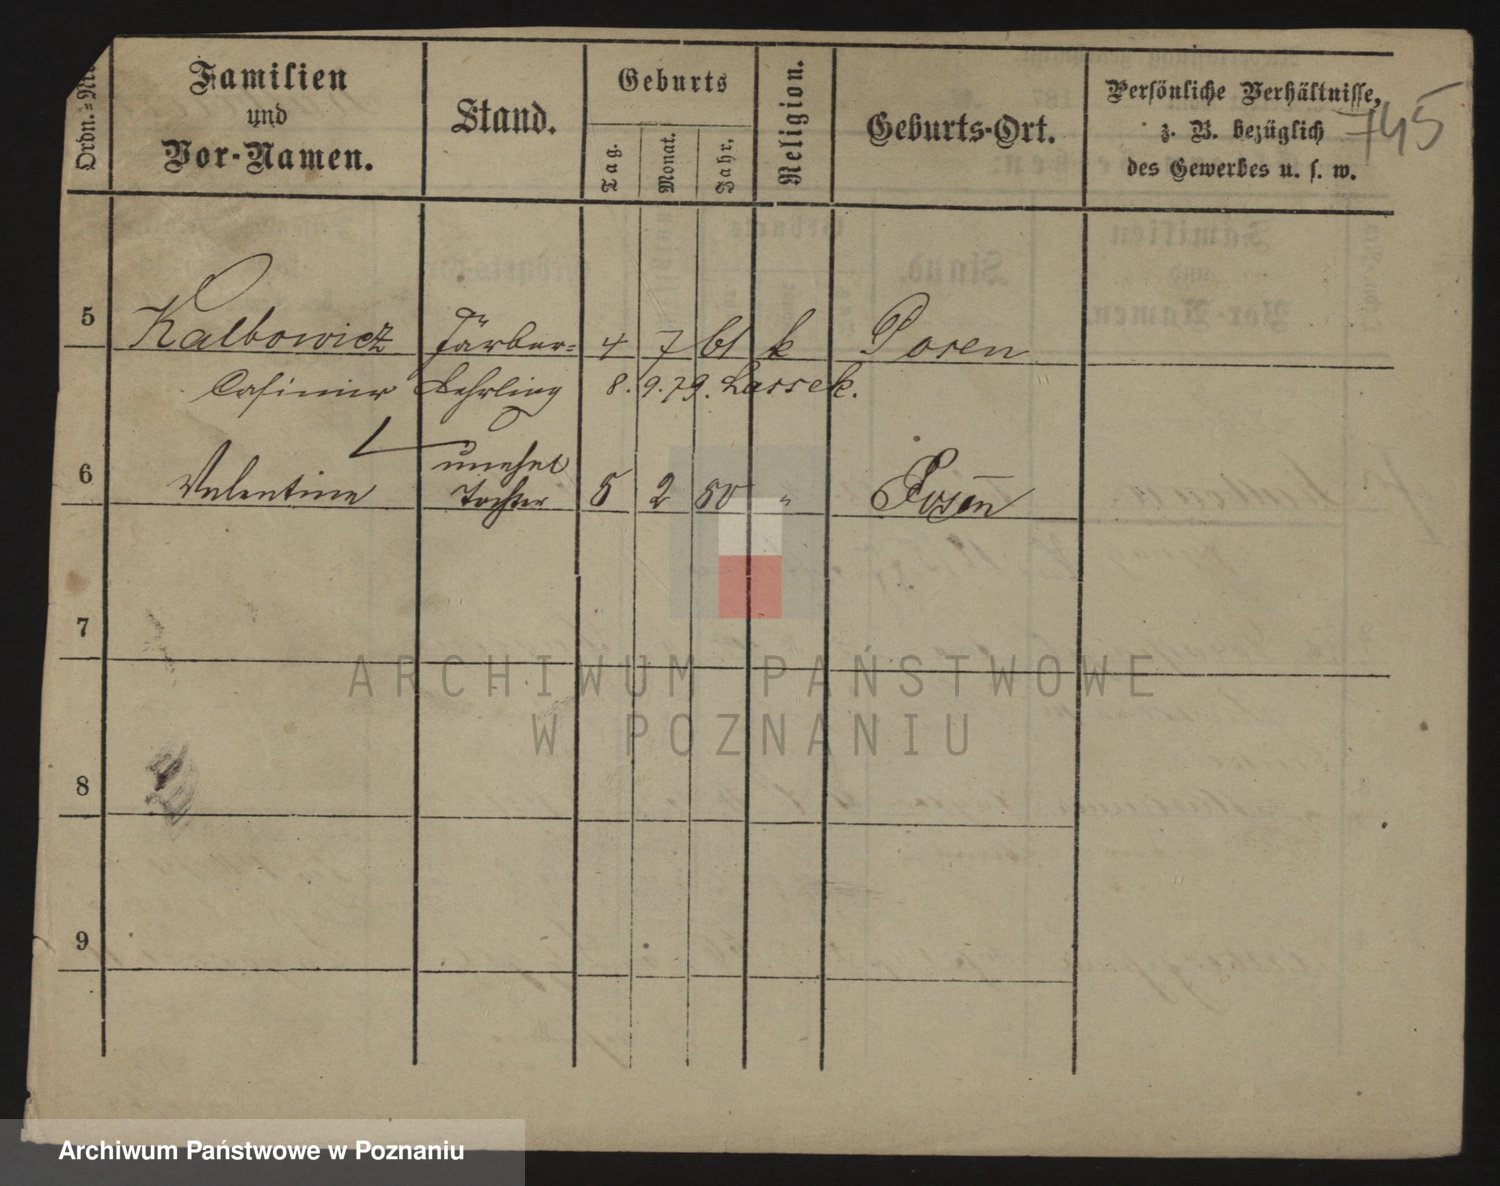 Ordn.=Nr.
Familien
und
Vor-Namen.
Stand.
Geburts
Tag.
Monat.
Jahr.
Religion.
Geburts-Ort.
Persönliche Verhältnisse,
z. B. bezüglich
des Gewerbes u. s. w.
745
5 Kalbowicz Färber= 4 7 61 k Posen
Casimir Lehrling 8. 9. 79. Lassek.
unehel
6 Valentine Tochter 5 2 80 " Posen
7
8
9
ARCHIWUM PAŃSTWOWE
W POZNANIU
Archiwum Państwowe w Poznaniu